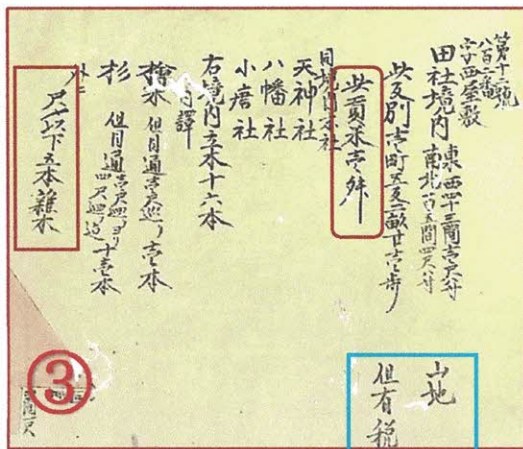 第十二號
八百二番
字西屋敷
田社境内 東西四十三間壱尺八寸
南北百五間四尺八寸
此反別壱町五反二畝廿壱歩
此貢米壱舛
同境内末社
天神社
八幡社
小瘡社
右境内立木十六本
内譯
檜木 但目通壱尺廻り 壱本
杉 但目通壱尺廻ヨリ四尺廻リ迄 十壱本
外ニ
尺以下五本雜木
山地
但有税
③